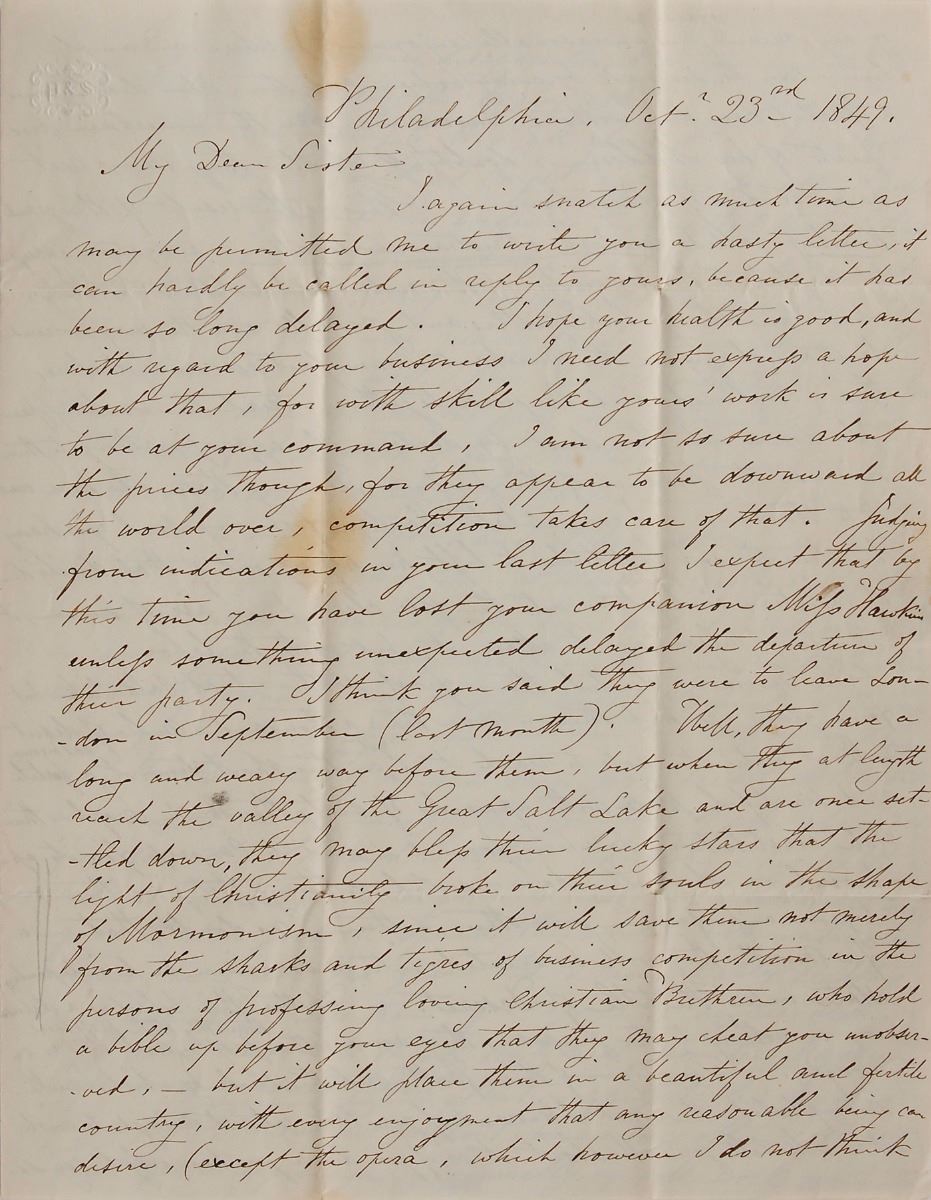 P & S
Philadelphia. Oct. 23rd 1849.
My Dear Sister
I again snatch as much time as
may be permitted me to write you a hasty letter, it
can hardly be called in reply to yours, because it has
been so long delayed. I hope your health is good, and
with regard to your business I need not express a hope
about that, for with skill like yours' work is sure
to be at your command, I am not so sure about
the prices though, for they appear to be downward all
the world over, competition takes care of that. Judging
from indications in your last letter I expect that by
this time you have lost your companion Miss Hawkins
unless something unexpected delayed the departure of
their party. I think you said they were to leave Lon-
-don in September (last month). Well, they have a
long and weary way before them, but when they at length
reach the valley of the Great Salt Lake and are once set-
-tled down, they may bless their lucky stars that the
light of Christianity broke on their souls in the shape
of Mormonism, since it will save them not merely
from the sharks and tigres of business competition in the
persons of professing loving Christian Brethren, who hold
a bible up before your eyes that they may cheat you unobser-
-ved, - but it will place them in a beautiful and fertile
country, with every enjoyment that any reasonable being can
desire, (except the opera, which however I do not think